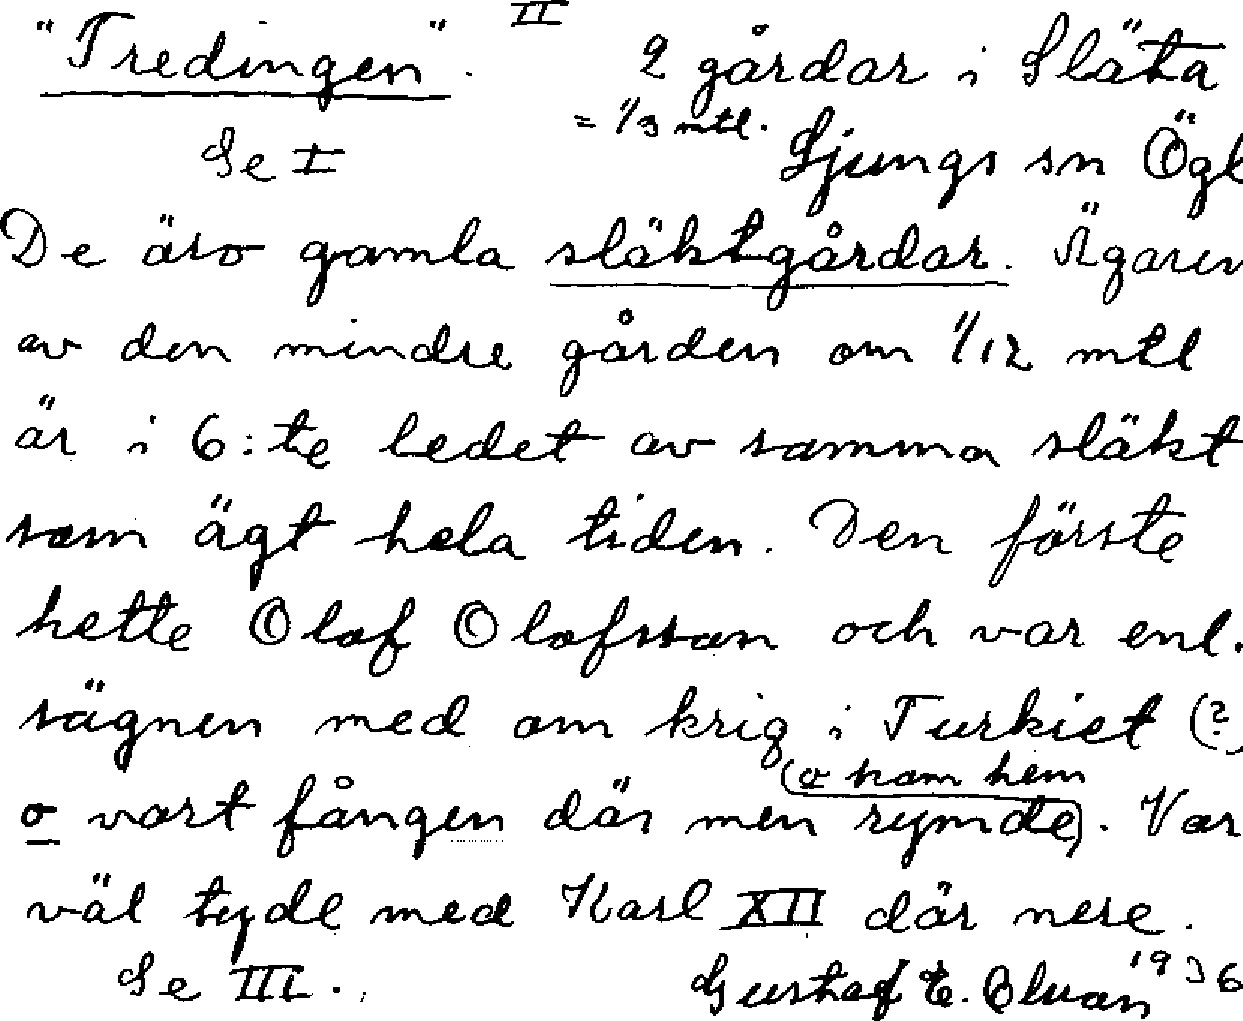 II
"Tredingen". 2 gårdar i Släta
= 1/3 mtl.
Se I Ljungs sn Ögl
De äro gamla släktgårdar. Ägaren
av den mindre gården om 1/12 mtl
är i 6:te ledet av samma släkt
som ägt hela tiden. Den förste
hette Olof Olofsson och var enl.
sägnen med om krig i Turkiet (?)
(o kom hem
o vart fången där men rymde). Var
väl tyde med Karl XII där nere.
Se III. Gustaf E. 1936